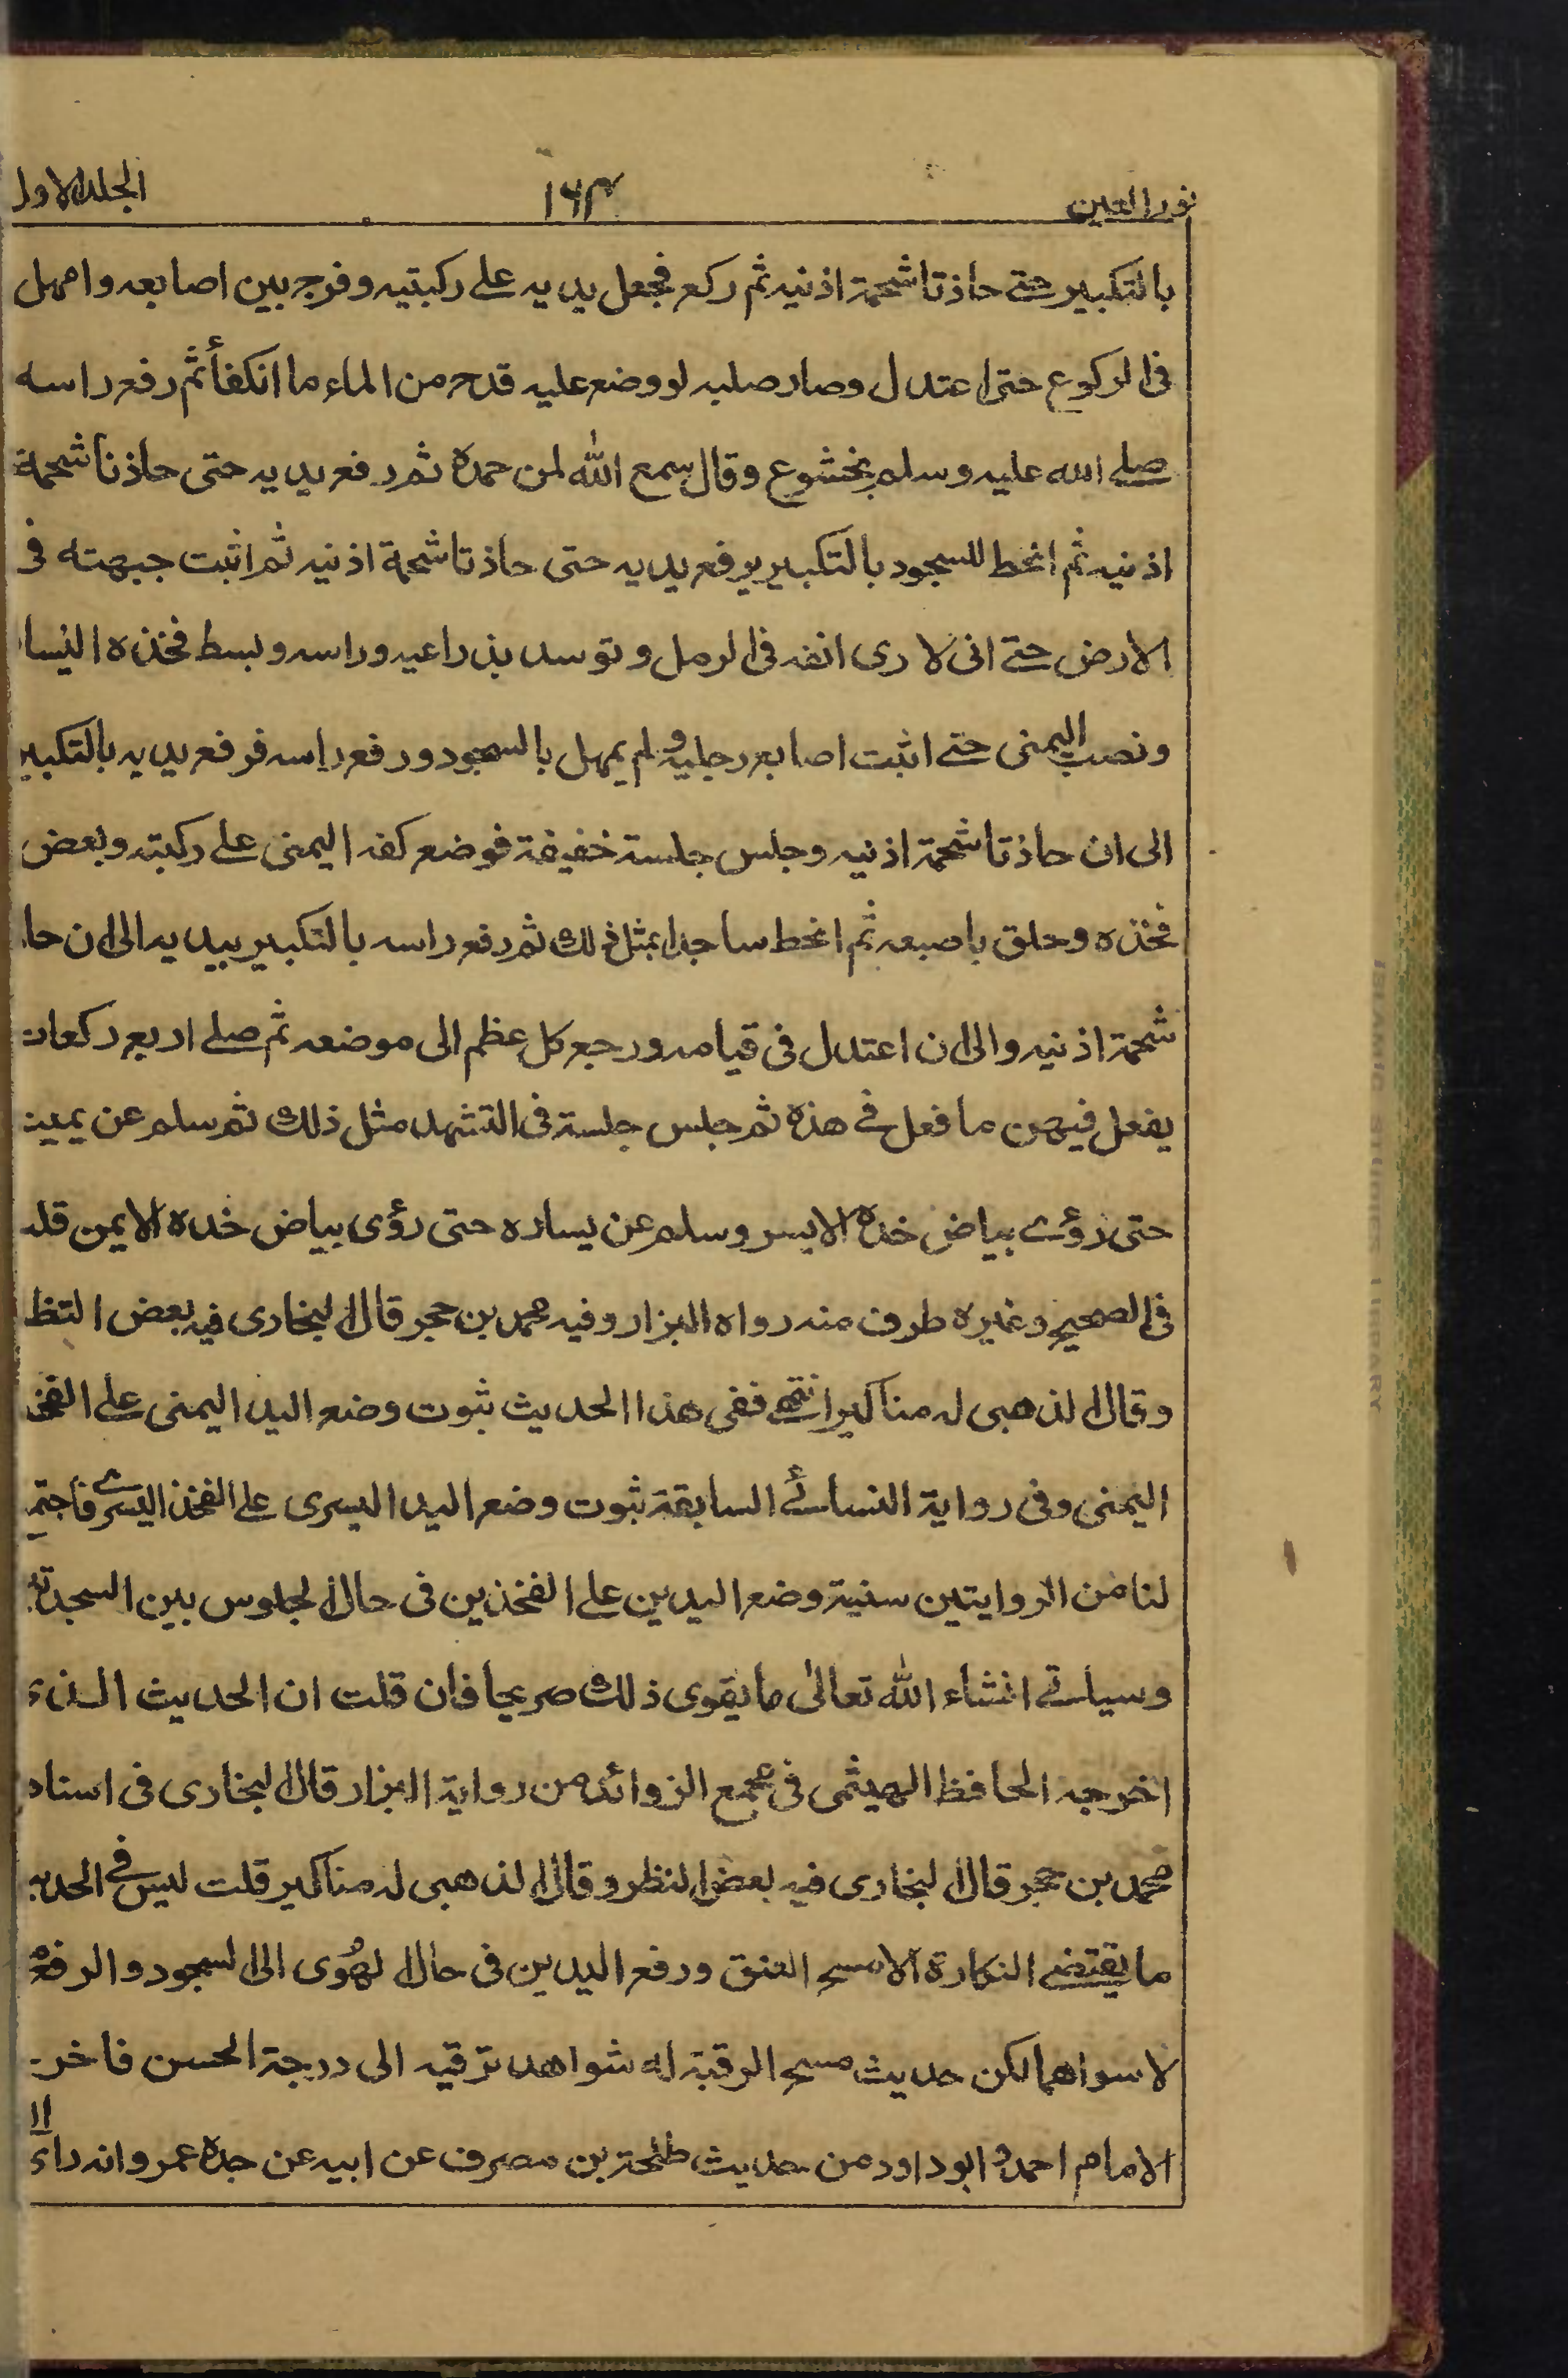 نور العين ١٦٣ الجلد الاول
بالتكبير حتے حاذتا شحمة اذنيه ثم ركع فجعل يديه علے ركبتيه وفرج بين اصابعه وامهل
فى الركوع حتى اعتدل وصار صلبه لو وضع عليه قدح من الماء ما انكفأ ثم رفع راسه
صلے الله عليه وسلم بخشوع وقال سمع الله لمن حمده ثم رفع يديه حتى حاذتا شحمة
اذنيه ثم انحط للسجود بالتكبير يرفع يديه حتى حاذتا شحمة اذنيه ثم اثبت جبهته فى
الارض حتے انى لارى انفه فى الرمل وتوسد بذراعيه وراسه وبسط فخذه اليسا
ونصب اليمنى حتے اثبت اصابع رجليه ولم يمهل بالسجود ورفع راسه فرفع يديه بالتكبير
الى ان حاذتا شحمة اذنيه وجلس جلسة خفيفة فوضع كفه اليمنى علے ركبته وبعض
فخذه وحلق باصبعه ثم انحط ساجدا بمثل ذلك ثم رفع راسه بالتكبير بيديه الى ان حا
شحمة اذنيه والى ان اعتدل فى قيامه ورجع كل عظم الى موضعه ثم صلے اربع ركعات
يفعل فيهن ما فعل فے هذه ثم جلس جلسة فى التشهد مثل ذلك ثم سلم عن يمين
حتى رؤے بياض خده الايسر وسلم عن يساره حتى رؤى بياض خده الايمن قلت
فى الصحيح وغيره طرف منه رواه البزار وفيه محمد بن حجر قال البخارى فيه بعض النظ
وقال الذهبى له مناكير انتهے ففى هذا الحديث ثبوت وضع اليد اليمنى علے الفخذ
اليمنى وفى رواية النسائے السابقة ثبوت وضع اليد اليسرى على الفخذ اليسرے فاجتمع
لنا من الروايتين سنية وضع اليدين على الفخذين فى حال الجلوس بين السجدتين
وسياتے انشاء الله تعالى ما يقوى ذلك صريحا فان قلت ان الحديث الذى
اخرجه الحافظ الهيثمى فى مجمع الزوائد من رواية البزار قال البخارى فى اسناد
محمد بن حجر قال البخارى فيه بعض النظر وقال الذهبى له مناكير قلت ليس فے الحديث
ما يقتضے النكارة الا مسح العنق ورفع اليدين فى حال الهُوى الى السجود والرفع
لا سواهما لكن حديث مسح الرقبة له شواهد ترقيه الى درجة الحسن فاخر
الامام احمد و ابو داود من حديث طلحة بن مصرف عن ابيه عن جده عمرو انه راى